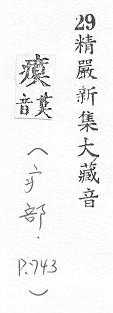 29精嚴新集大藏音
瘼
莫音
（疒部．P.743）